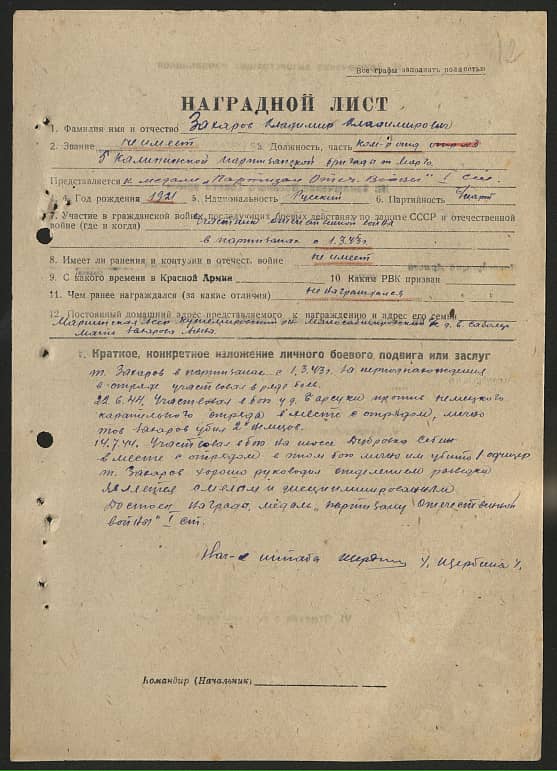 12
Все графы заполнять полностью
НАГРАДНОЙ ЛИСТ
1. Фамилия имя и отчество Захаров Владимир Владимирович
2. Звание не имеет 3. Должность, часть ком-
5 Калининской партизанской бригады
Представляется к медали „Партизан Отеч. Войны" I ст.
4. Год рождения 1921 5. Национальность Русский 6. Партийность
7. Участие в гражданской войне, последующих боевых действиях по защите СССР и отечественной
войне (где и когда) Участник отечественной войны
в партизанах с 1.3.43 г.
8. Имеет ли ранения и контузии в отечест. войне не имеет
9. С какого времени в Красной Армии 10. Каким РВК призван
11. Чем ранее награждался (за какие отличия) не награждался
12. Постоянный домашний адрес представляемого к награждению и адрес его семьи
Марийская АССР р-н д.
мать Захарова Анна
1. Краткое, конкретное изложение личного боевого подвига или заслуг
т. Захаров в партизанах с 1.3.43 г. За период нахождения
в отряде участвовал в ряде боев.
22.6.44. Участвовал в бою у д. Барсуки против немецкого
карательного отряда вместе с отрядом, лично
тов Захаров убил 2х немцов.
14.7.44. Участвовал в бою на шоссе Дубровка Себеж
вместе с отрядом в этом бою лично им убито 1 офицер
т. Захаров хорошо руководил отделением разведки
является смелым и дисциплинированным
Достоен награды медаль „партизану Отечественной
войны" I ст.
Нач-к штаба Щербина
Командир (Начальник)